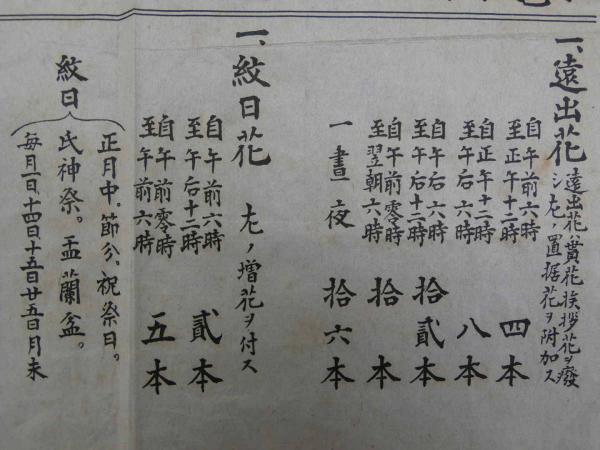 一、遠出花 遠出花ハ貰花挨拶花ヲ廢シ左ノ置据花ヲ附加ス
自午前六時至正午十二時 四本
自正午十二時至午后六時 八本
自午后六時至午后十二時 拾貳本
自午前零時至翌朝六時 拾本
一晝一夜 拾六本
一、紋日花 左ノ增花ヲ付ス
自午前六時至午后十二時 貳本
自午前零時至午前六時 五本
紋日
正月中。節分、祝祭日。
氏神祭。盂蘭盆。
每月一日十四日十五日廿五日月末